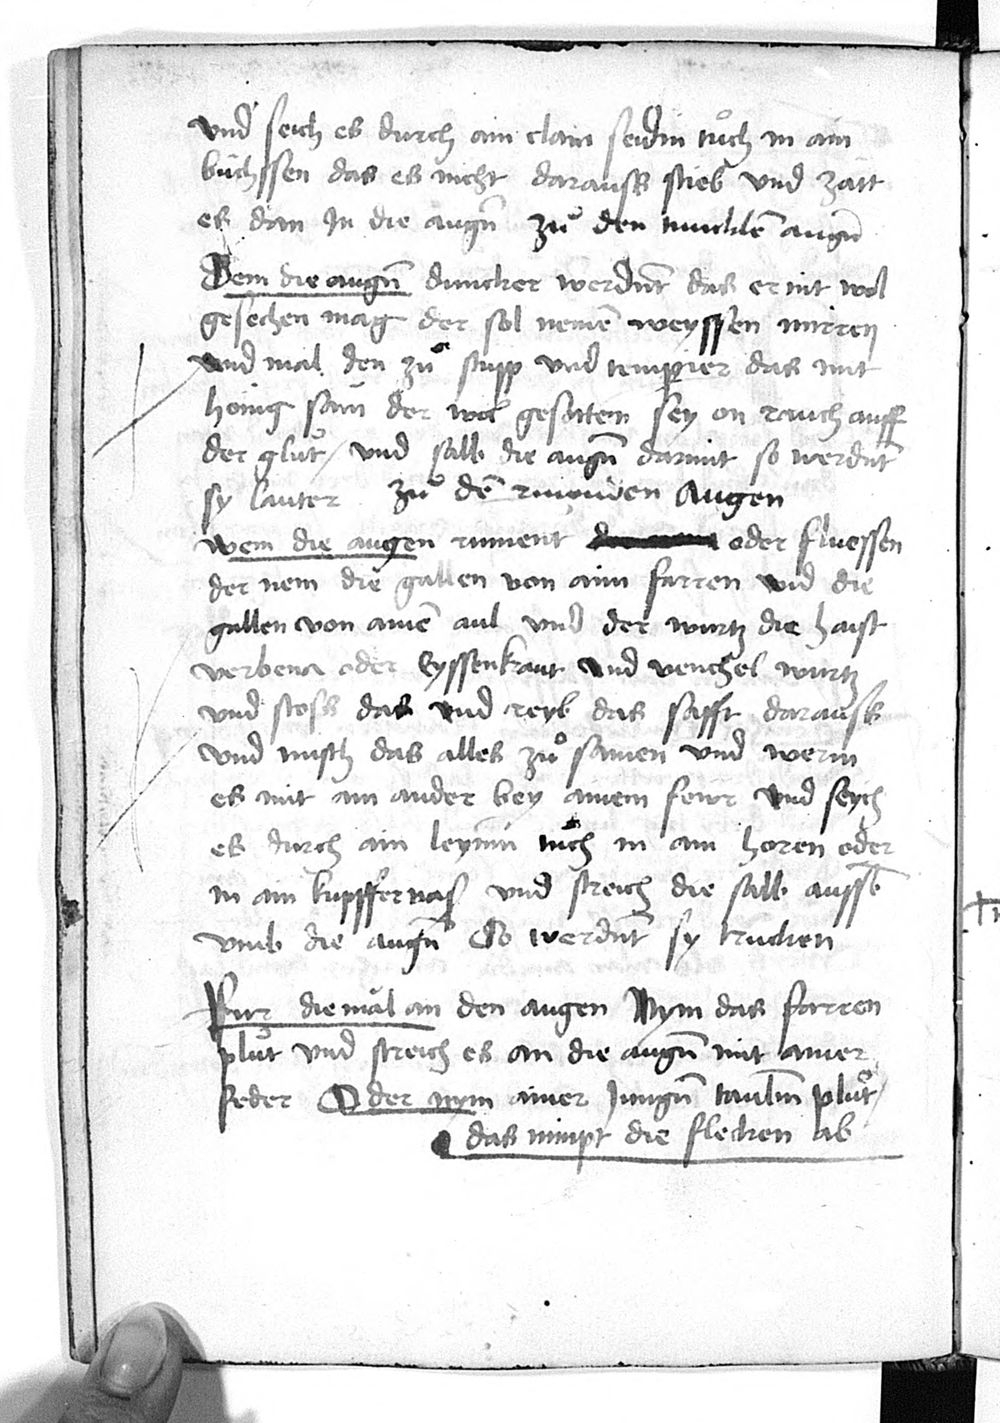 vnd seich es durch ain clain seidin tuͦch in ain
büchssen das es nicht darauss stieb vnd zätt
es dan In die augn̄ zuͦ den tuncklē augn̄
Wem die augn̄ duncker werdn̄t das er nit wol
gesechen mag der sol nemē weyssen mirren
vnd mal den zuͦ stupp vnd temperier das mit
honig sam der wol gesotten sey on rauch auff
der gluͦt / vnd salb die augn̄ darmit so werdn̄t
sy lauter zuͦ dē rinnenden Augen
wem die augen rinnent oder fluessen
der nem die gallen von aim farren vnd die
gallen von ainē aul vnd der wurtz die haist
verbena oder Eyssenkraut vnd venchel wurtz
vnd stoss das vnd reyb das safft darauss
vnd misch das alles zuͦ samen vnd werm
es mit ain ander bey ainem fewr vnd seych
es durch ain leynin tuͦch in ain horen oder
in ain kupffer vas vnd streich die salb aussē
vmb die augn̄ So werdn̄t sy trucken
Fur die mäl an den augen Nym das farren
pluͦt vnd streich es an die augn̄ mit ainer
feder Oder nym ainer Jungn̄ taubm̄ pluͦt /
das nimpt die flecken ab